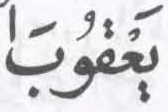 يَعْقُوبَا